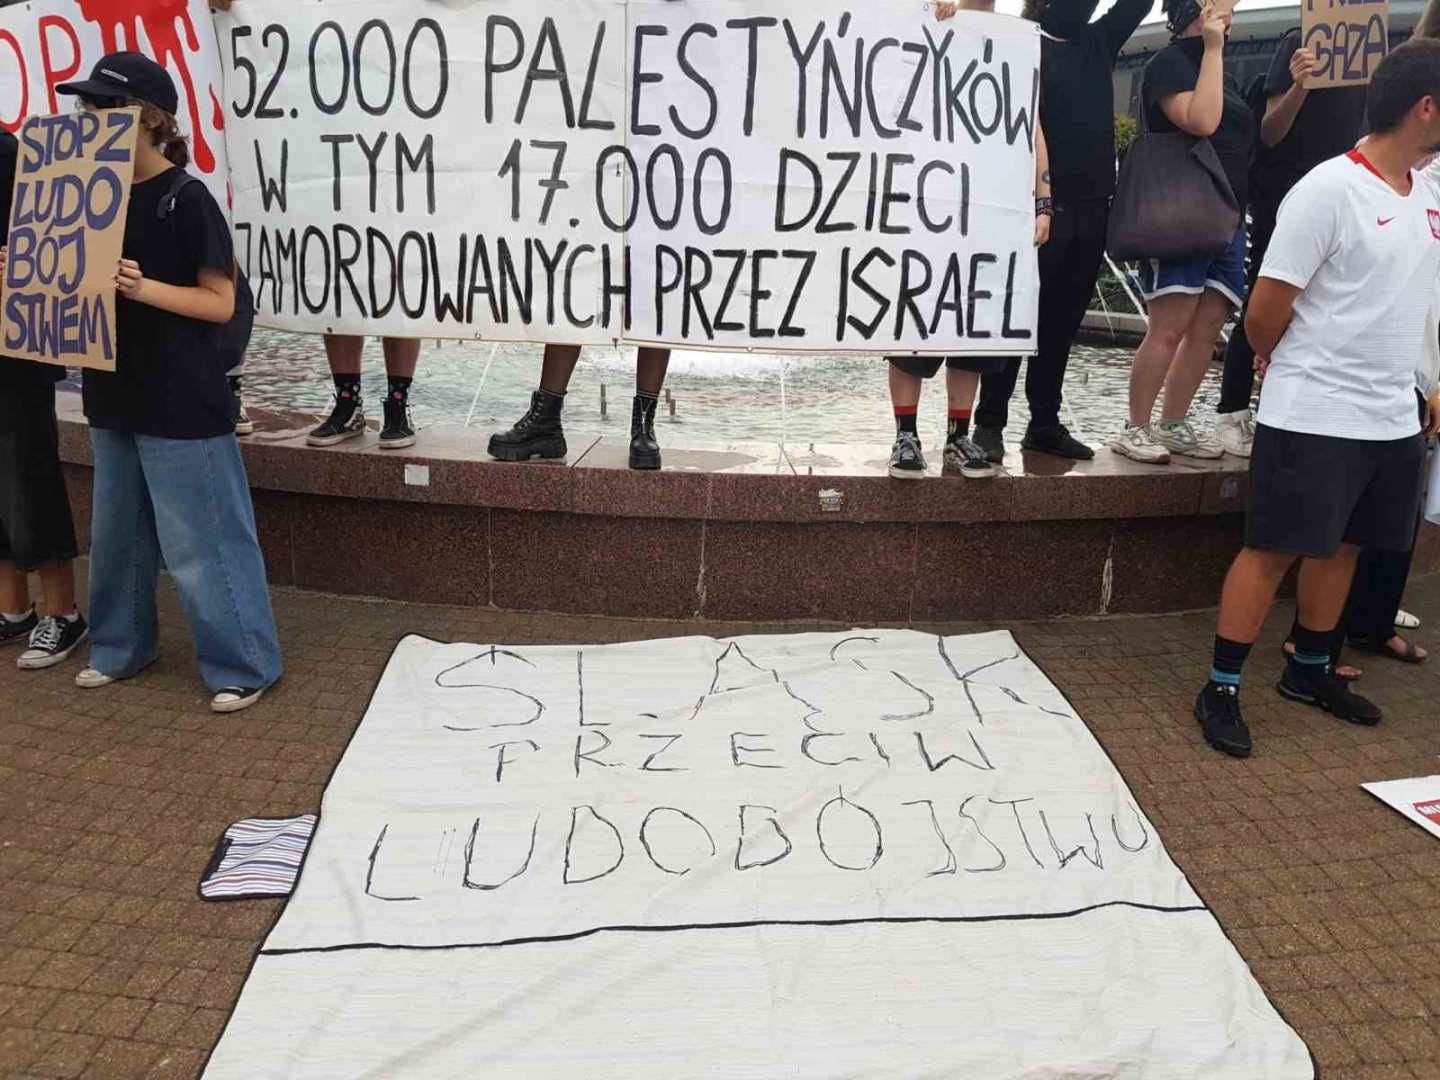 OP
52.000 PALESTYŃCZYKÓW
W TYM 17.000 DZIECI
ZAMORDOWANYCH PRZEZ ISRAEL
STOP Z
LUDO
BÓJ
STWEM
GAZA
ŚLĄSK
PRZECIW
LUDOBÓJSTWU